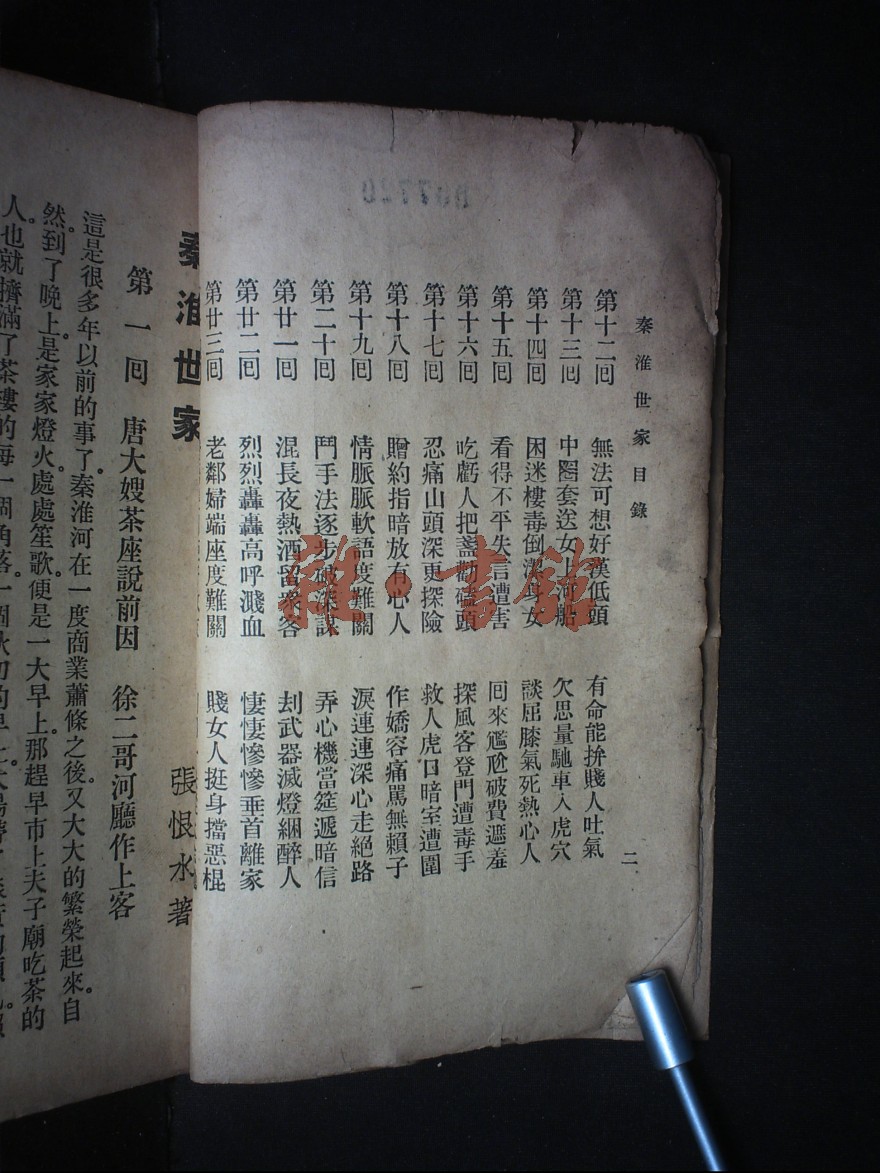 秦淮世家目錄
二
第十二回 無法可想好漢低頭 有命能拚賤人吐氣
第十三回 中圈套送女上河船 欠思量馳車入虎穴
第十四回 困迷樓毒倒潔身女 談屈膝氣死熱心人
第十五回 看得不平失言遭害 回來尷尬破費遮羞
第十六回 吃虧人把盞勸磕頭 探風客登門遭毒手
第十七回 忍痛山頭深更探險 救人虎口暗室遭圍
第十八回 贈約指暗放有心人 作嬌容痛罵無賴子
第十九回 情脈脈軟語度難關 淚連連深心走絕路
第二十回 鬥手法逐步破深謀 弄心機當筵遞暗信
第廿一回 混長夜熱酒留衆客 刦武器滅燈綑醉人
第廿二回 烈烈轟轟高呼濺血 悽悽慘慘垂首離家
第廿三回 老鄰婦端座度難關 賤女人挺身擋惡棍
B07720
雜·書館
秦淮世家
張恨水著
第一回 唐大嫂茶座說前因 徐二哥河廳作上客
這是很多年以前的事了。秦淮河在一度商業蕭條之後。又大大的繁榮起來。自
然。到了晚上。是家家燈火。處處笙歌。便是一大早上。那趕早市上夫子廟吃茶的
人。也就擠滿了茶樓的每一個角落。一個秋初的早上。太陽